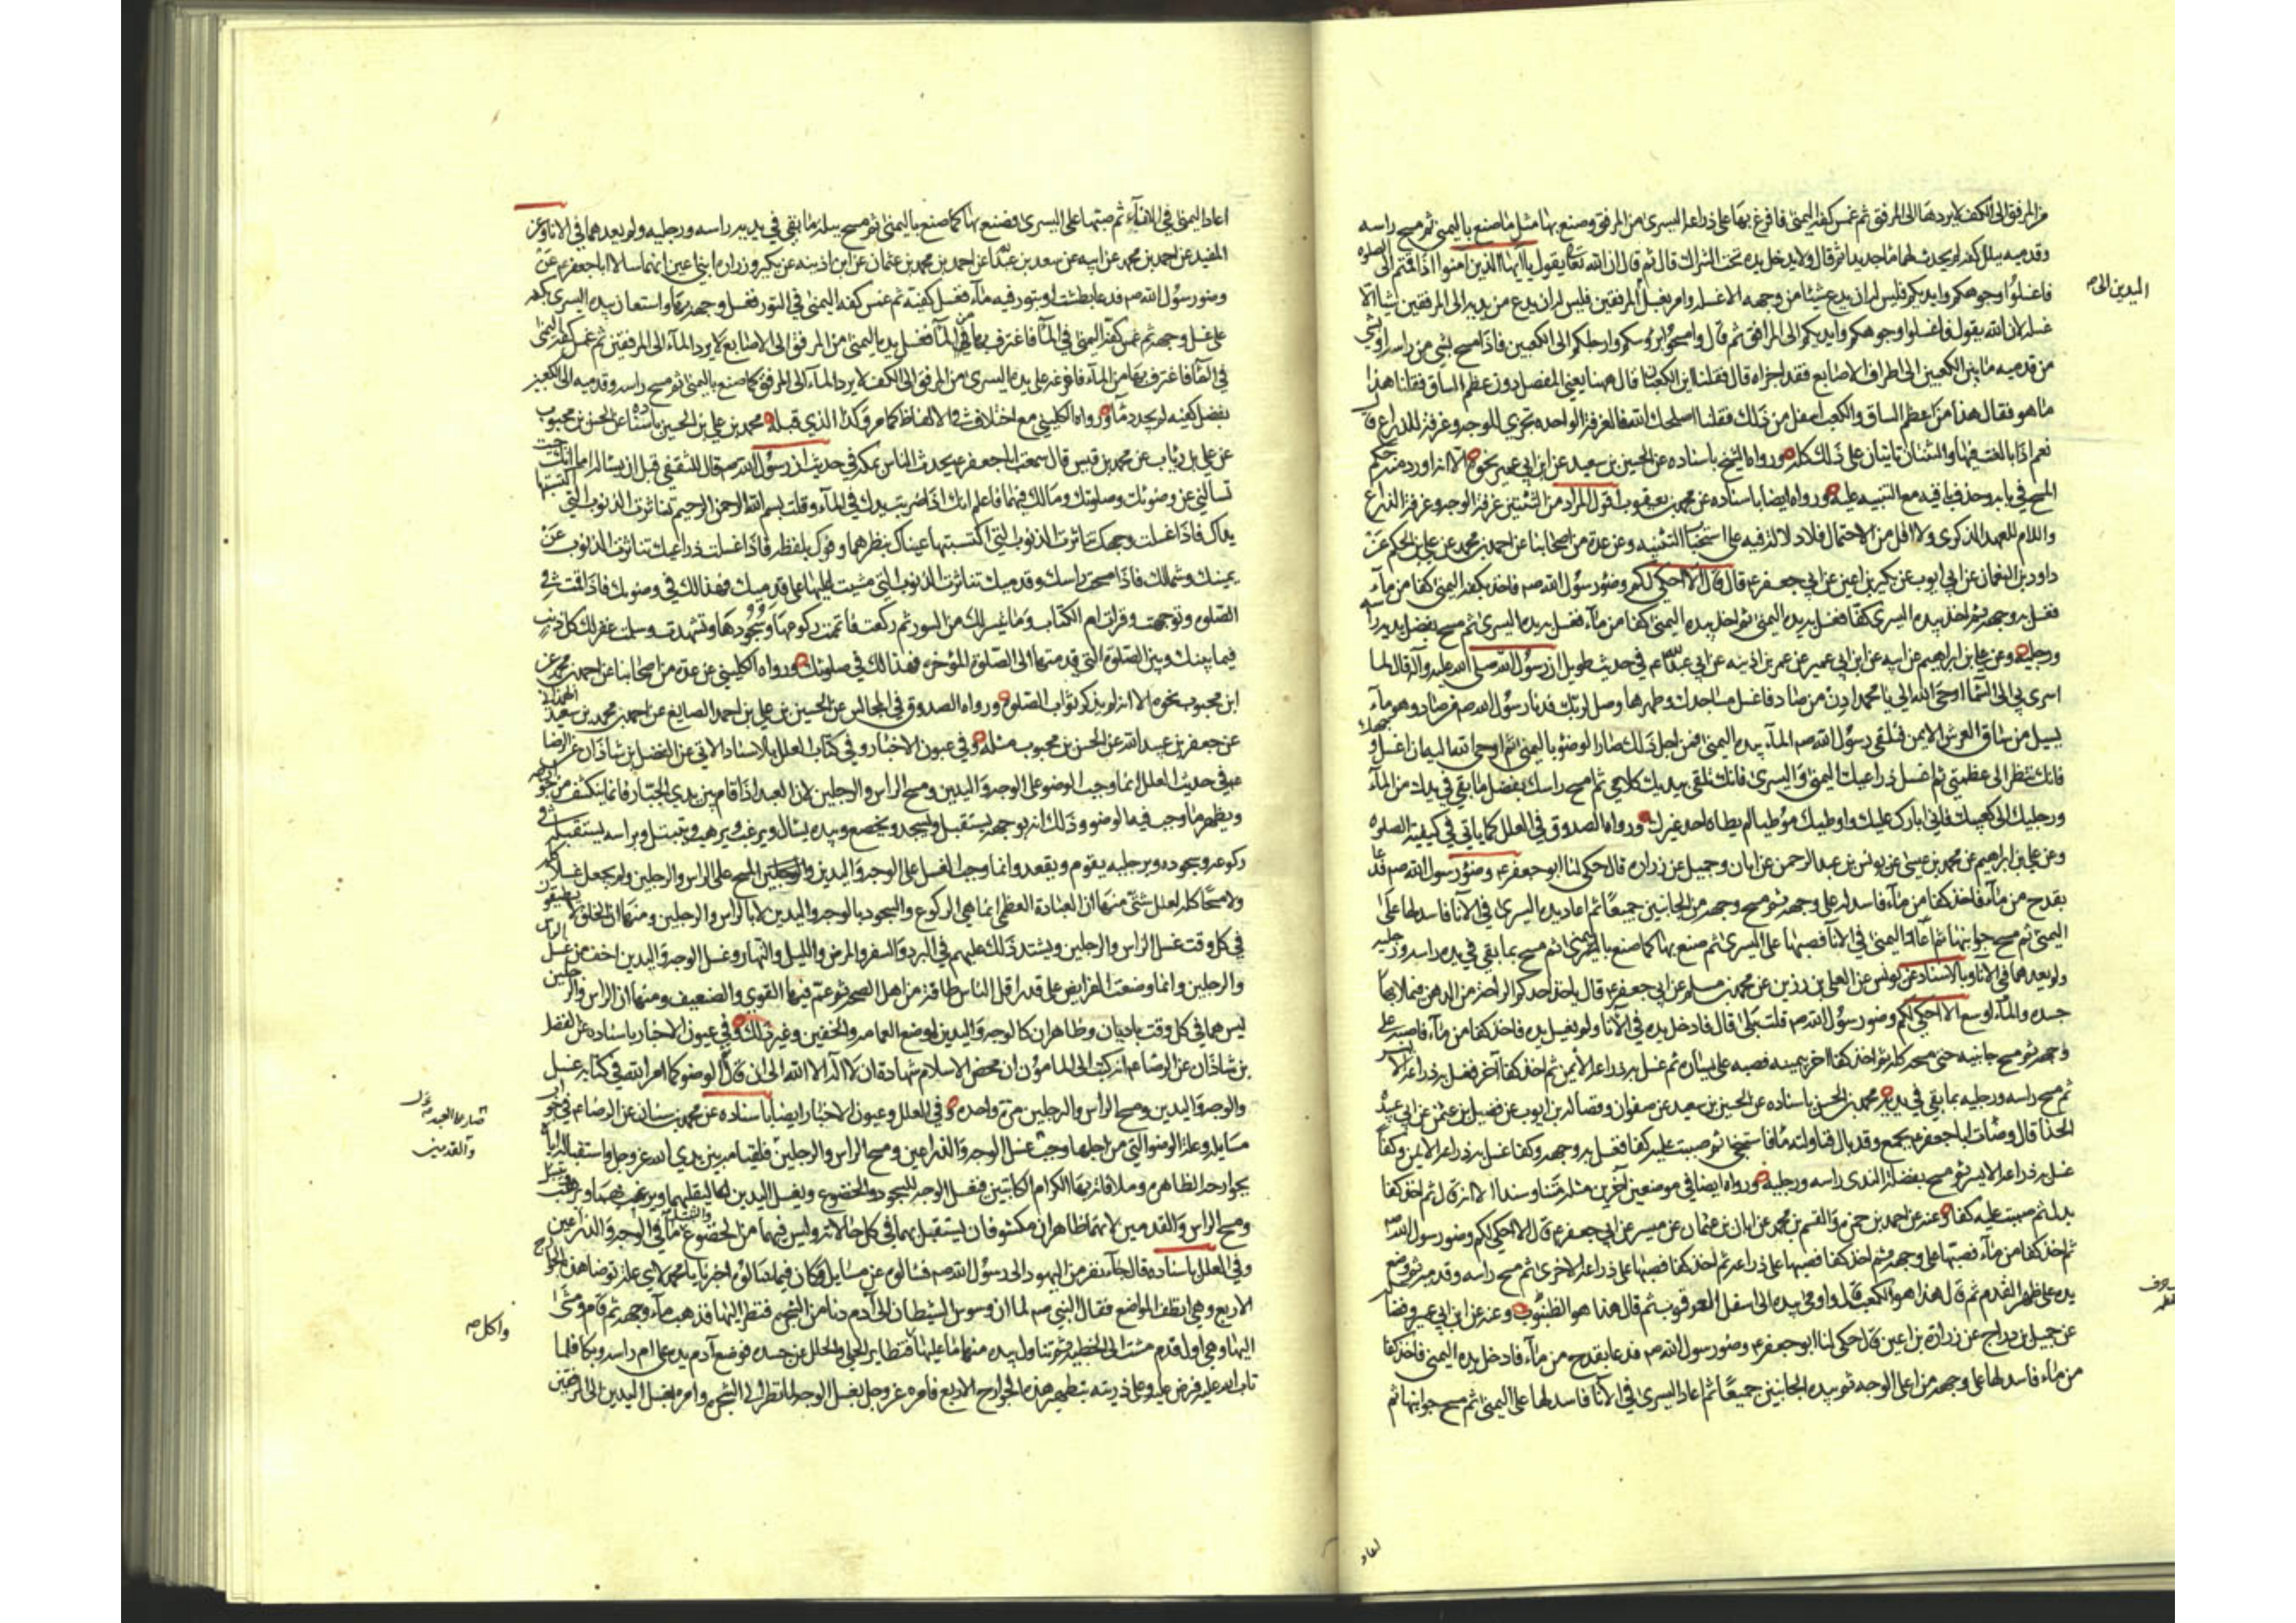 من المرفق الى الكف لا يردها الى المرفق ثم غمس كفه اليمنى فافرغ بها على ذراعه اليسرى من المرفق وصنع بها مثل ما صنع باليمنى ثم مسح راسه
وقدميه ببلل كفه لم يحدث لهما ماء جديدا ثم قال ولا يدخل يده تحت الشراك قال ثم قال ان الله تعا يقول يا ايها الذين امنوا اذا قمتم الى الصلوه
فاغسلوا وجوهكم وايديكم فليس له ان يدع شيئا من وجهه الا غسله وامر بغسل المرفقين فليس له ان يدع من يديه الى المرفقين شيئا الا
اليدين الى صه
غسله لان الله يقول فاغسلوا وجوهكم وايديكم الى المرافق ثم قال وامسحوا برؤسكم وارجلكم الى الكعبين فاذا مسح بشئ من راسه او بشئ
من قدميه ما بين الكعبين الى اطراف الاصابع فقد اجزاه قال فقلنا اين الكعبان قال ههنا يعنى المفصل دون عظم الساق فقلنا هذا
ما هو فقال هذا من عظم الساق والكعب اسفل من ذلك فقلنا اصلحك الله فالغرفة الواحده تجزى للوجه وغرفة للذراع قال
نعم اذا بالغت فيها والثنتان تاتيان على ذلك كله ورواه الشيخ باسناده عن الحسين بن سعيد عن ابن ابي عمير نحوه الا انه اورد منه حكم
المسح في بابه وحذف باقيه مع التنبيه عليه ورواه ايضا باسناده عن محمد بن يعقوب اقول المراد من الثنتين غرفة الوجه وغرفة الذراع
واللام للعهد الذكرى ولا اقل من الاحتمال فلا دلالة فيه على استحباب التثنيه وعن عدة من اصحابنا عن احمد بن محمد عن علي بن الحكم عن
داود بن النعمان عن ابي ايوب عن بكير بن اعين عن ابي جعفر ع قال قال الا احكي لكم وضوء رسول الله صه فاخذ بكفه اليمنى كفا من ماء
فغسل به وجهه ثم اخذ بيده اليسرى كفا فغسل به يده اليمنى ثم اخذ بيده اليمنى كفا من ماء فغسل به يده اليسرى ثم مسح بفضل يديه راسه
ورجليه وعن علي بن ابراهيم عن ابيه عن ابن ابي عمير عن عمر بن اذينه عن ابي عبد الله ع في حديث طويل ان رسول الله صلى الله عليه وآله قال لما
اسرى بي الى السماء اوحى الله الى يا محمد ادن من صاد فاغسل مساجدك وطهرها وصل لربك فدنا رسول الله صه من صاد وهو ماء
يسيل من ساق العرش الايمن فتلقى رسول الله صه الماء بيده اليمنى فمن اجل ذلك صار الوضوء باليمنى ثم اوحى الله اليه ان اغسل وجهك
فانك تنظر الى عظمتي ثم اغسل ذراعيك اليمنى واليسرى فانك تلقى بيديك كلامي ثم امسح راسك بفضل ما بقي في يديك من الماء
ورجليك الى كعبيك فاني ابارك عليك واوطيك موطيا لم يطاه احد غيرك ورواه الصدوق في العلل كما ياتي في كيفية الصلوه
وعن علي بن ابراهيم عن محمد بن عيسى عن يونس بن عبد الرحمن عن ابان وجميل عن زراره قال حكى لنا ابو جعفر ع وضوء رسول الله صه فدعا
بقدح من ماء فاخذ كفا من ماء فاسدله على وجهه ثم مسح وجهه من الجانبين جميعا ثم اعاد يده اليسرى في الاناء فاسدلها على
اليمنى ثم مسح جوانبها ثم اعاد اليمنى في الاناء فصبها على اليسرى ثم صنع بها كما صنع باليمنى ثم مسح بما بقي في يده راسه ورجليه
ولم يعدهما في الاناء وبالاسناد عن يونس عن العلى بن رزين عن محمد بن مسلم عن ابي جعفر ع قال ياخذ احدكم الراحة من الدهن فيملا بها
جسده والماء اوسع الا احكي لكم وضوء رسول الله صه قلت بلى قال فادخل يده في الاناء ولم يغسل يده فاخذ كفا من ماء فصبه على
وجهه ثم مسح جانبيه حتى مسحه كله ثم اخذ كفا آخر بيمينه فصبه على يساره ثم غسل به ذراعه الايمن ثم اخذ كفا آخر فغسل به ذراعه الايسر
ثم مسح راسه ورجليه بما بقي في يديه محمد بن الحسن باسناده عن الحسين بن سعيد عن صفوان وفضالة بن ايوب عن فضيل بن عثمن عن ابي عبيدة
الحذا قال وضات ابا جعفر ع بجمع وقد بال فناولته ماء فاستنجى ثم صببت عليه كفا فغسل به وجهه وكفا غسل به ذراعه الايمن وكفا
غسل به ذراعه الايسر ثم مسح بفضلة الندى راسه ورجليه ورواه ايضا في موضعين آخرين مثله متنا وسندا الا انه قال ثم اخذ كفا
بدل ثم صببت عليه كفا وعنه عن احمد بن حمزه والقسم بن محمد عن ابان بن عثمان عن ميسر عن ابي جعفر ع قال الا احكي لكم وضوء رسول الله صه
ثم اخذ كفا من ماء فصبها على وجهه ثم اخذ كفا فصبها على ذراعه ثم اخذ كفا فصبها على ذراعه الاخرى ثم مسح راسه وقدميه ثم وضع
يده على ظهر القدم ثم قال هذا هو الكعب قال واومى بيده الى اسفل العرقوب ثم قال هذا هو الظنبوب وعنه عن ابن ابي عمير وفضاله
عن جميل بن دراج عن زرارة بن اعين قال حكى لنا ابو جعفر ع وضوء رسول الله صه فدعا بقدح من ماء فادخل يده اليمنى فاخذ كفا
من ماء فاسدلها على وجهه من اعلى الوجه ثم مسح بيده الجانبين جميعا ثم اعاد اليسرى في الاناء فاسدلها على اليمنى ثم مسح جوانبها ثم
اعاد
اعاد اليمنى في الاناء ثم صبها على اليسرى فصنع بها كما صنع باليمنى ثم مسح ببلة ما بقي في يديه راسه ورجليه ولم يعدهما في الاناء وعن
المفيد عن احمد بن محمد عن ابيه عن سعد بن عبد الله عن احمد بن محمد بن عثمان عن ابن اذينه عن بكير وزراره ابني اعين انهما سالا ابا جعفر ع عن
وضوء رسول الله صه فدعا بطشت او بتور فيه ماء فغسل كفيه ثم غمس كفه اليمنى في التور فغسل وجهه بها واستعان بيده اليسرى بكفه
على غسل وجهه ثم غمس كفه اليمنى في الماء فاغترف بها من الماء فغسل يده اليمنى من المرفق الى الاصابع لا يرد الماء الى المرفقين ثم غمس كفه اليمنى
في الماء فاغترف بها من الماء فافرغه على يده اليسرى من المرفق الى الكف لا يرد الماء الى المرفق كما صنع باليمنى ثم مسح راسه وقدميه الى الكعبين
بفضل كفيه لم يجدد ماء ورواه الكليني مع اختلاف في الالفاظ كما مر وكذا الذي قبله محمد بن علي بن الحسين باسناده عن الحسن بن محبوب
عن علي بن رئاب عن محمد بن قيس قال سمعت ابا جعفر ع يحدث الناس بمكه في حديث ان رسول الله صه قال للثقفي قبل ان يساله اما انك جئت
تسالني عن وضوئك وصلوتك ومالك فيهما فاعلم انك اذا ضربت يدك في الماء وقلت بسم الله الرحمن الرحيم تناثرت الذنوب التي اكتسبتها
يداك فاذا غسلت وجهك تناثرت الذنوب التي اكتسبتها عيناك بنظرهما وفوك بلفظه فاذا غسلت ذراعيك تناثرت الذنوب عن
يمينك وشمالك فاذا مسحت راسك وقدميك تناثرت الذنوب التي مشيت اليها على قدميك فهذا لك في وضوئك فاذا قمت في
الصلوه وتوجهت وقرات ام الكتاب وما تيسر لك من السور ثم ركعت فاتممت ركوعها وسجودها وتشهدت وسلمت غفر لك كل ذنب
فيما بينك وبين الصلوة التي قدمتها الى الصلوة المؤخره فهذا لك في صلوتك ورواه الكليني عن عدة من اصحابنا عن احمد بن محمد عن
ابن محبوب نحوه الا انه لم يذكر ثواب الصلوة ورواه الصدوق في المجالس عن الحسين بن علي بن احمد الصايغ عن احمد بن محمد بن سعيد الهمداني
عن جعفر بن عبيد الله عن الحسن بن محبوب مثله وفي عيون الاخبار وفي كتاب العلل بالاسناد الاتي عن الفضل بن شاذان عن الرضا
ع في حديث العلل انما وجب الوضوء على الوجه واليدين ومسح الراس والرجلين لان العبد اذا قام بين يدي الجبار فانما ينكشف من جوارحه
ويظهر ما وجب فيه الوضوء وذلك انه بوجهه يستقبل ويسجد ويخضع وبيده يسال ويرغب ويرهب ويتبتل وبراسه يستقبل في
ركوعه وسجوده وبرجليه يقوم ويقعد وانما وجب الغسل على الوجه واليدين والمسح على الراس والرجلين ولم يجعل غسلا كله
ولا مسحا كله لعلل شتى منها ان العبادة العظمى انما هي الركوع والسجود بالوجه واليدين لا بالراس والرجلين ومنها ان الخلق لا يطيقون
في كل وقت غسل الراس والرجلين ويشتد ذلك عليهم في البرد والسفر والمرض والليل والنهار وغسل الوجه واليدين اخف من غسل الراس
والرجلين وانما وضعت الفرايض على قدر اقل الناس طاقة من اهل الصحة ثم عم فيها القوي والضعيف ومنها ان الراس والرجلين
ليس هما في كل وقت باديان وظاهران كالوجه واليدين لموضع العمامه والخفين وغير ذلك وفي عيون الاخبار باسناده عن الفضل
بن شاذان عن الرضا ع انه كتب الى المامون ان محض الاسلام شهادة ان لا اله الا الله الى ان قال الوضوء كما امر الله في كتابه غسل
والوجه واليدين ومسح الراس والرجلين مرة واحده وفي العلل وعيون الاخبار ايضا باسناده عن محمد بن سنان عن الرضا ع في جواب
مسايله وعلة الوضوء التي من اجلها وجب غسل الوجه والذراعين ومسح الراس والرجلين فلقيامه بين يدي الله عز وجل واستقباله اياه
والقدمين
بجوارحه الظاهره وملاقاته بها الكرام الكاتبين فغسل الوجه للسجود والخضوع وبغسل اليدين ليقلبهما ويرغب بهما ويرهب ويتبتل
ومسح الراس والقدمين لانهما ظاهران مكشوفان يستقبل بهما في كل حالاته وليس فيهما من الخضوع والتبتل ما في الوجه والذراعين
وفي العلل باسناده قال جاء نفر من اليهود الى رسول الله صه فسالوه عن مسايل فكان فيما سالوه اخبرنا يا محمد لاي علة توضا هذه الجوارح
الاربع وهي انظف المواضع فقال النبي صه لما ان وسوس الشيطان الى آدم دنا من الشجره فنظر اليها فذهب ماء وجهه ثم قام ومشى
اليها وهي اول قدم مشت الى الخطيئة ثم تناول بيده منها ما عليها فتطاير الحلي والحلل عن جسده فوضع آدم يده على ام راسه وبكا فلما
واكل صه
تاب الله عليه فرض عليه وعلى ذريته تطهير هذه الجوارح الاربع فامره عز وجل بغسل الوجه لما نظر الى الشجره وامره بغسل اليدين الى المرفقين